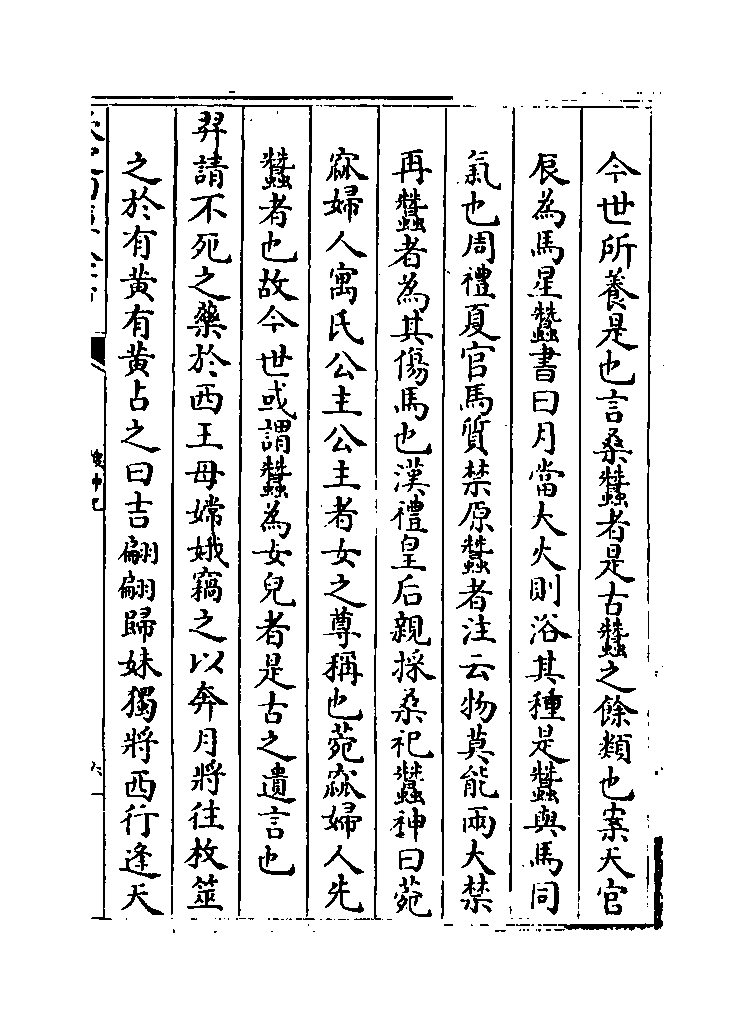 今世所養是也言桑蠶者是古蠶之餘類也案天官
辰為馬星蠶書曰月當大火則浴其種是蠶與馬同
氣也周禮夏官馬質禁原蠶者注云物莫能兩大禁
再蠶者為其傷馬也漢禮皇后親採桑祀蠶神曰菀
窳婦人寓氏公主公主者女之尊稱也菀窳婦人先
蠶者也故今世或謂蠶為女兒者是古之遺言也
羿請不死之藥於西王母嫦娥竊之以奔月將往枚筮
之於有黄有黄占之曰吉翩翩歸妹獨將西行逢天